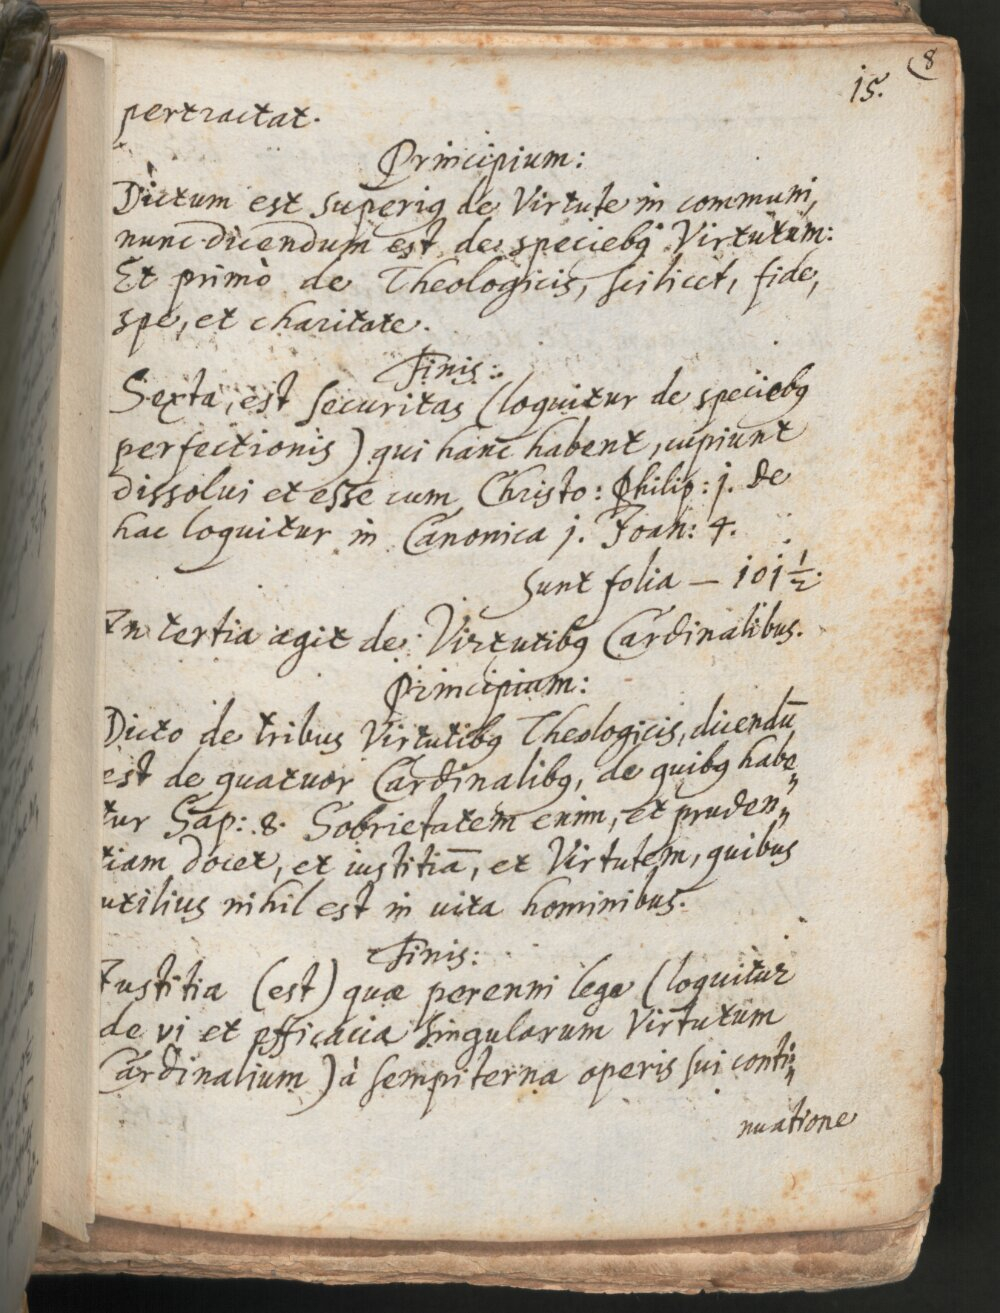 8
15.
pertractat.
Principium:
Dictum est superiꝰ de Virtute in communi,
nunc dicendum est de speciebꝰ Virtutum:
Et primò de Theologicis, scilicet, fide,
spe, et charitate.
Finis:
Sexta, est securitas (loquitur de speciebꝰ
perfectionis) qui hanc habent, cupiunt
dissolui et esse cum Christo: Philip: j. De
hac loquitur in Canonica j. Joan: 4.
Sunt folia — 101 1/2.
In tertia agit de Virtutibꝰ Cardinalibus.
Principium:
Dicto de tribus Virtutibꝰ Theologicis, dicendū
est de quatuor Cardinalibꝰ, de quibꝰ habe„
tur Sap: .8. Sobrietatem enim, et pruden„
tiam docet, et iustitiā, et Virtutem, quibus
utilius nihil est in uita hominibus.
Finis:
Iustitia (est) quæ perenni lege (loquitur
de vi et efficacia singularum Virtutum
Cardinalium) à sempiterna operis sui conti„
nuatione